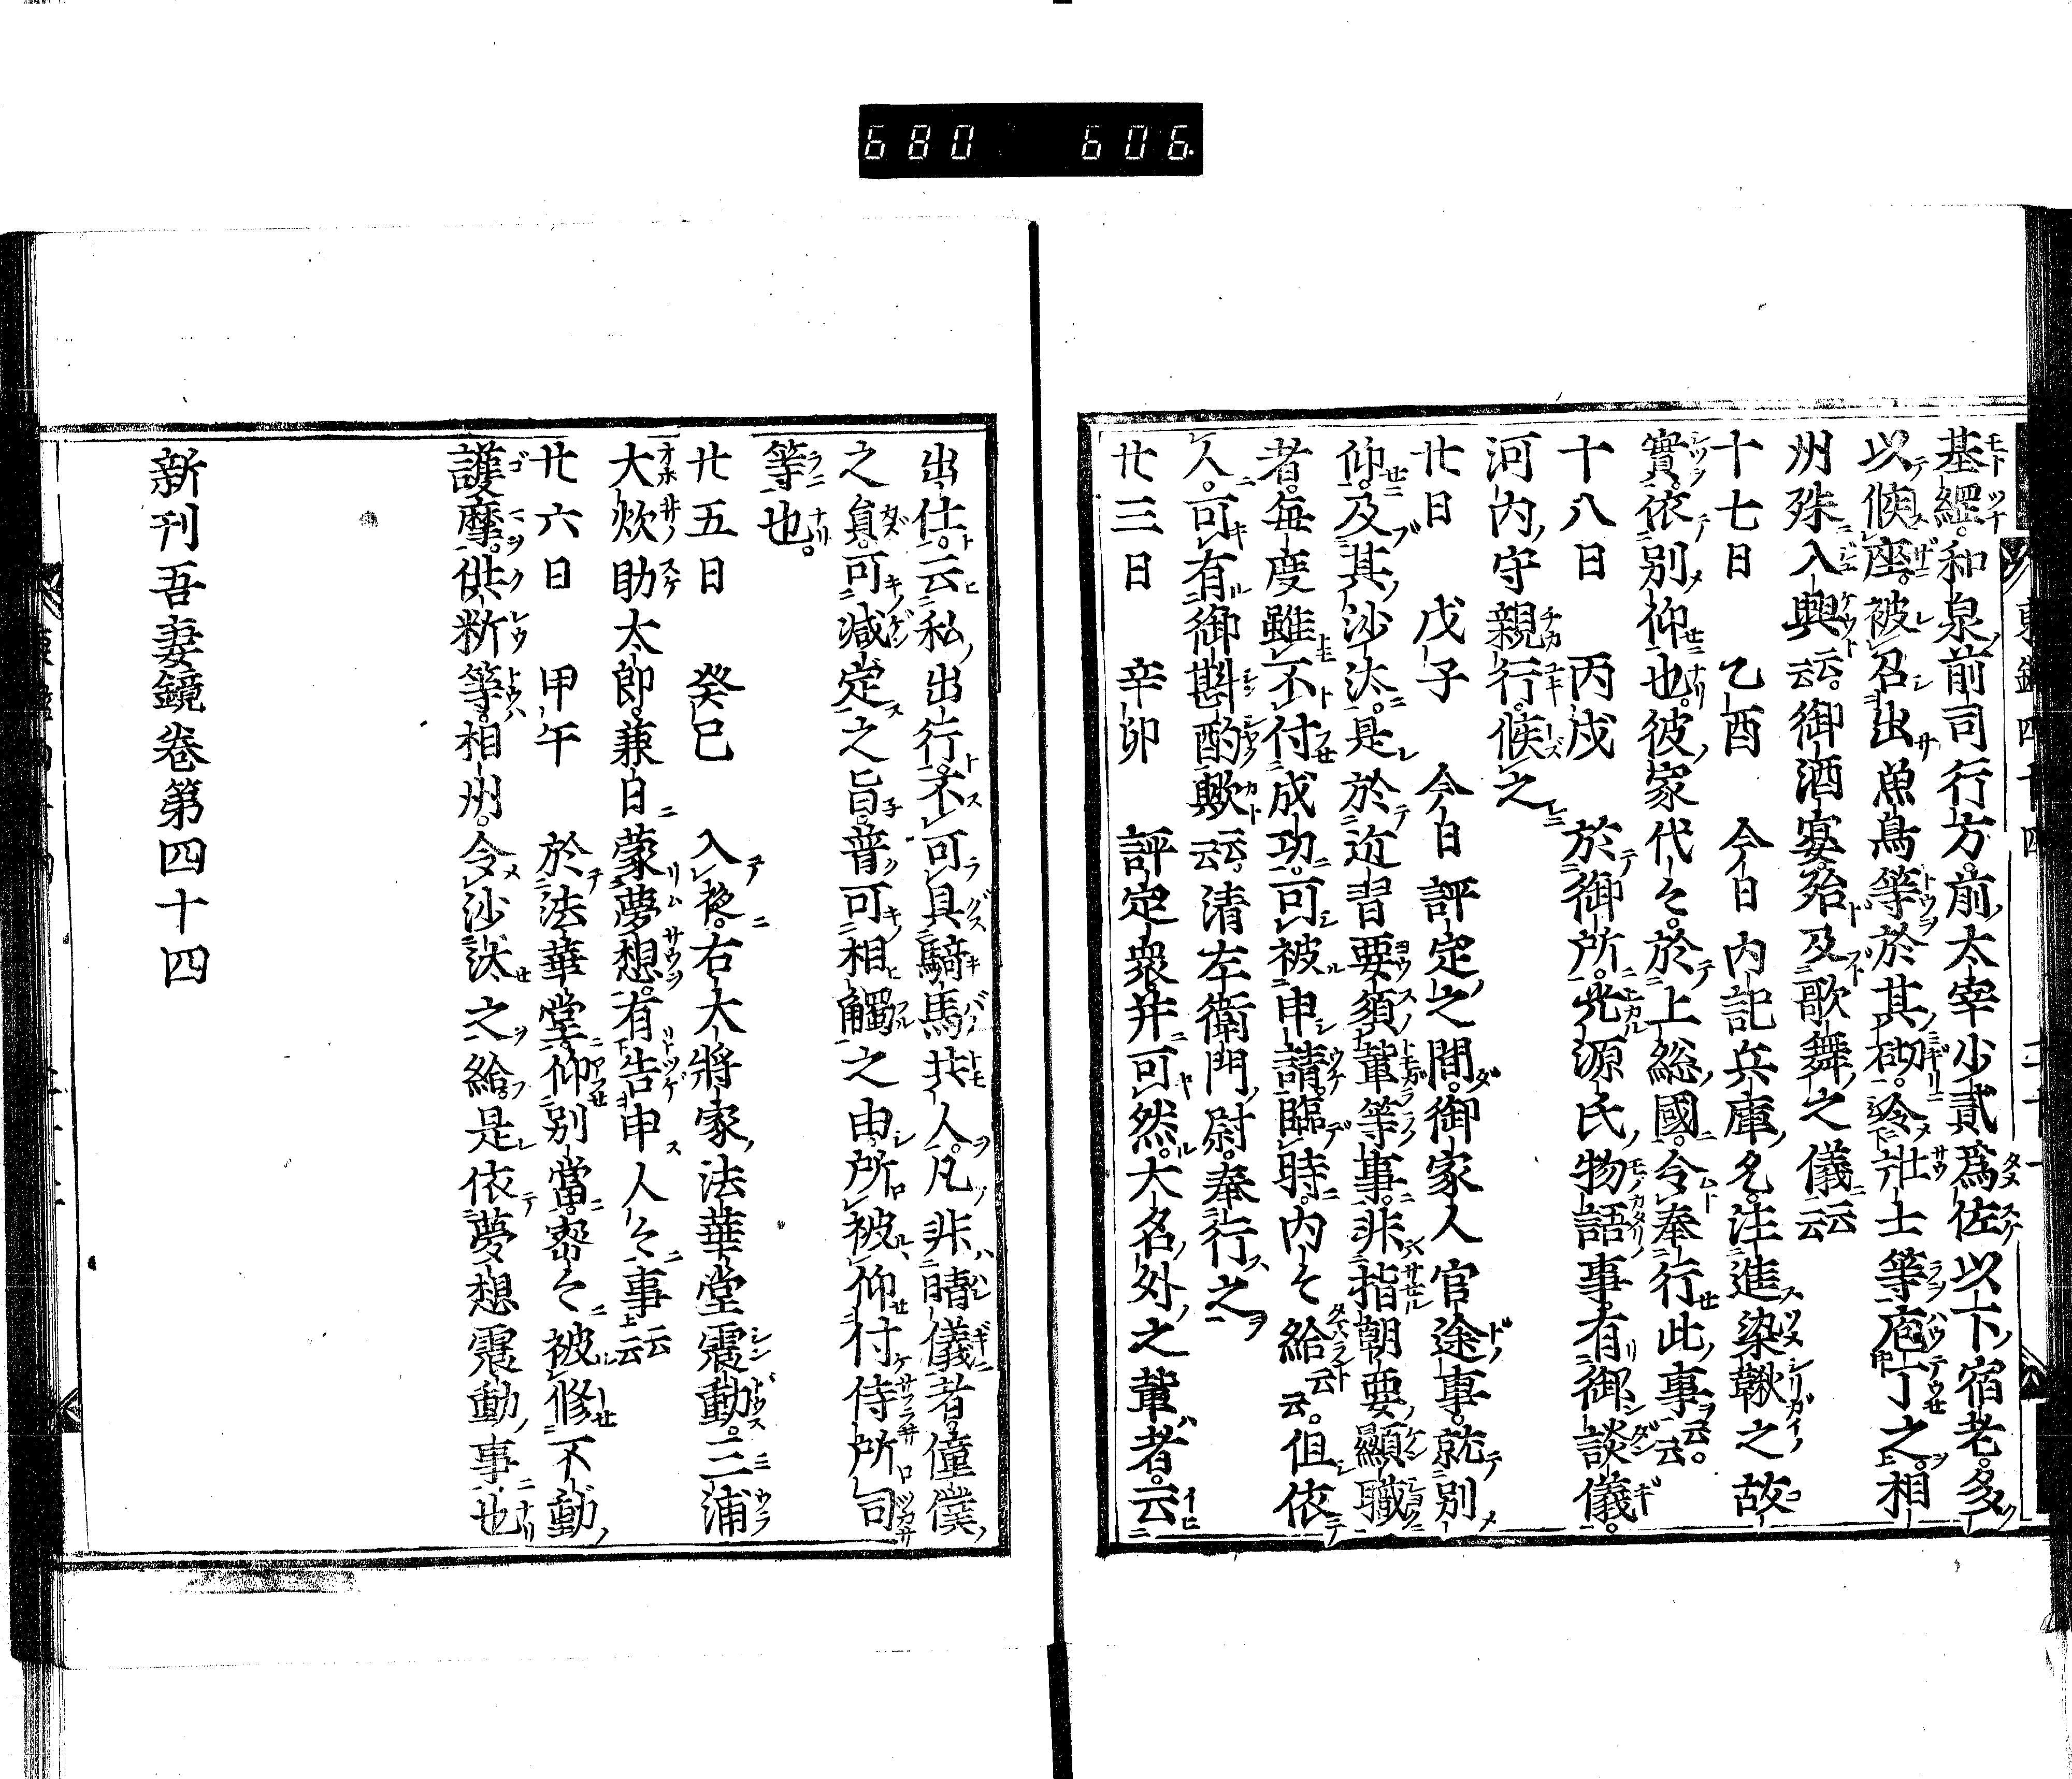 680 606
基綱。和泉前司行方。前太宰少貳爲佐以下宿老。多
以候座。被召出魚鳥等於其砌。令壯士等庖丁之。相
州殊入興云云。御酒宴。殆及歌舞之儀云云
十七日 乙酉 今日內記兵庫允。注進染鞦之故
實。依別仰也。彼家代々。於上総國。令奉行此事云云。
十八日 丙戌 於御所。光源氏物語事。有御談儀。
河内守親行。候之
廿日 戊子 今日評定之間。御家人官途事。就別
仰。及其沙汰。是於近習要須輩等事。非指朝要顯職
者。每度雖不付成功。可被申請。臨時內々給云云。但依
人。可有御斟酌歟云云。清左衛門尉。奉行之
廿三日 辛卯 評定衆。并可然。大名外之輩者。云
出仕。云私出行。不可具騎馬共人。凡非晴儀者。僮僕
之員。可減定之旨。普可相觸之由。所被仰付侍所司
等也。
廿五日 癸巳 入夜。右大將家法華堂震動。三浦
大炊助太郎。兼日蒙夢想。有告申人々事云云
廿六日 甲午 於法華堂。仰別當。密々被修不動
護摩。供析等。相州。令沙汰之給。是依夢想震動事也
新刊吾妻鏡卷第四十四